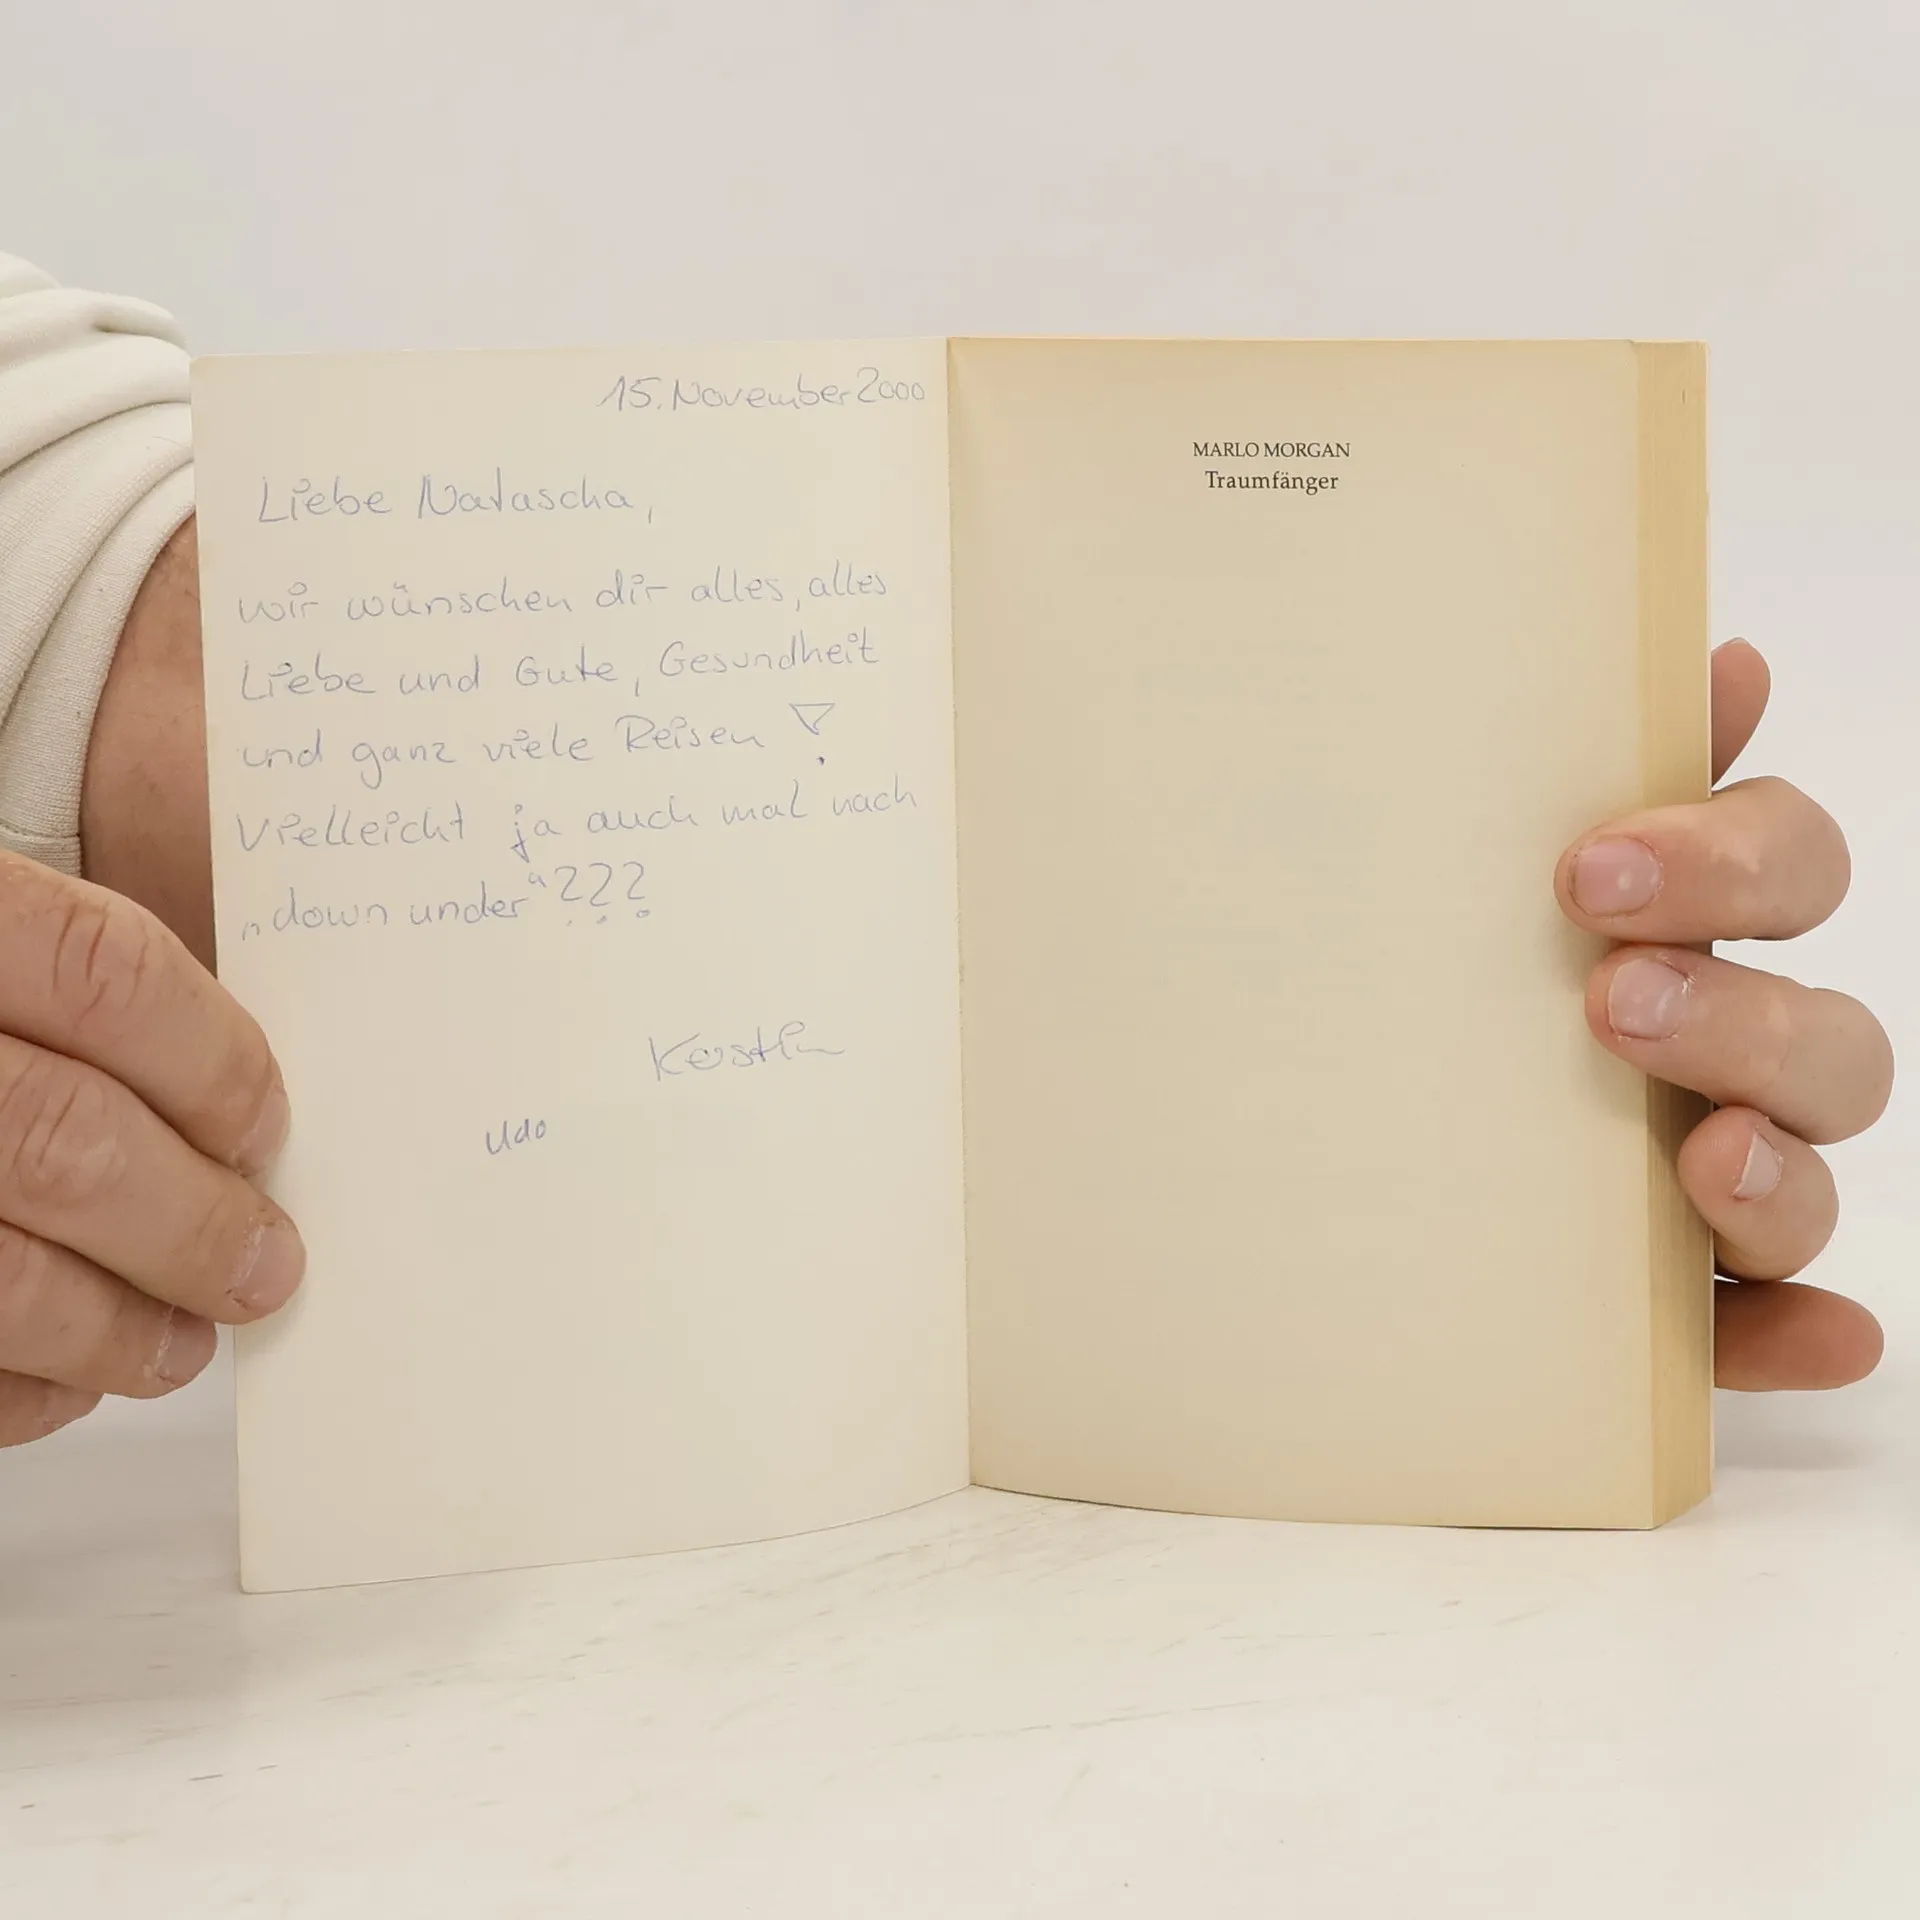 15. November 2000
Liebe Natascha,
wir wünschen dir alles, alles
Liebe und Gute, Gesundheit
und ganz viele Reisen !
Vielleicht ja auch mal nach
„down under“???
Kerstin
Udo
MARLO MORGAN
Traumfänger